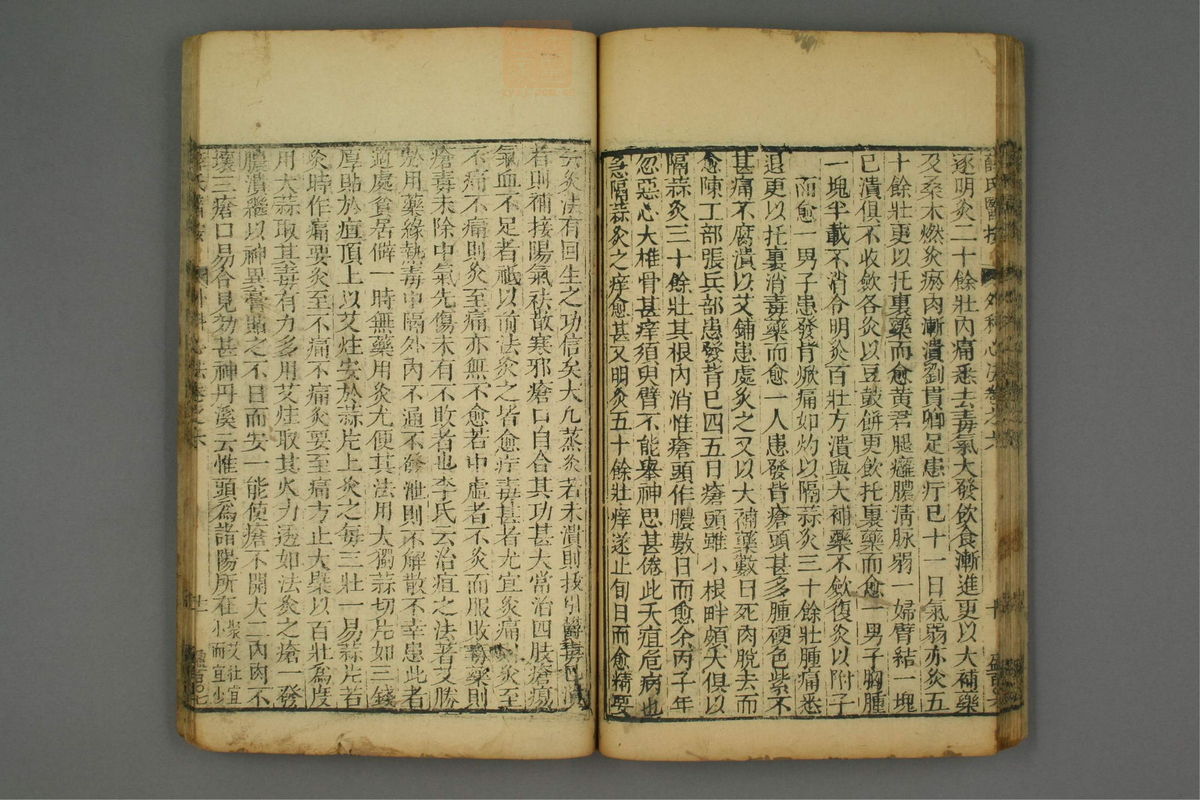 薛氏醫按 外科心法卷之六 十
逐明灸二十餘壯内痛悉去毒氣大發飲食漸進更以大補藥
及桑木燃灸瘀肉漸潰劉貫卿足患疔已十一日氣弱亦灸五
十餘壯更以托裏藥而愈黃君腿癰膿清脉弱一婦臂結一塊
已潰俱不收斂各灸以豆豉餅更飲托裏藥而愈一男子胸腫
一塊半載不消令明灸百壯方潰與大補藥不斂復灸以附子
而愈一男子患發背焮痛如灼以隔蒜灸三十餘壯腫痛悉
退更以托裏消毒藥而愈一人患發背瘡頭甚多腫硬色紫不
甚痛不腐潰以艾鋪患處灸之又以大補藥數日死肉脱去而
愈陳工部張兵部患發背已四五日瘡頭雖小根畔頗大俱以
隔蒜灸三十餘壯其根内消惟瘡頭作膿數日而愈余丙子年
忽惡心大椎骨甚痒須臾臂不能舉神思甚倦此夭疽危病也
急隔蒜灸之痒愈甚又明灸五十餘壯痒遂止旬日而愈精要
云灸法有回生之功信矣大凡蒸灸若未潰則拔引鬱毒已潰
者則補接陽氣祛散寒邪瘡口自合其功甚大當治四肢瘡瘍
氣血不足者秪以前法灸之皆愈疔毒甚者尤宜灸痛灸至
不痛不痛則灸至痛亦無不愈若中虛者不灸而服敗毒藥則
瘡毒未除中氣先傷未有不敗者也李氏云治疽之法著艾勝
於用藥緣熱毒中隔外内不通不發泄則不解散不幸患此者
適處貧居僻一時無藥用灸尤便其法用大獨蒜切片如三錢
厚貼於疽頂上以艾炷安於蒜片上灸之每三壯一易蒜片若
灸時作痛要灸至不痛不痛灸要至痛方止大槩以百壯爲度
用大蒜取其毒有力多用艾炷取其火力透如法灸之瘡一發
膿潰繼以神異膏貼之不日而安一能使瘡不開大二内肉不
壞三瘡口易合見効甚神丹溪云惟頭爲諸陽所在聚艾壯宜小而宜少
薛氏醫按 外科心法卷之六 十一